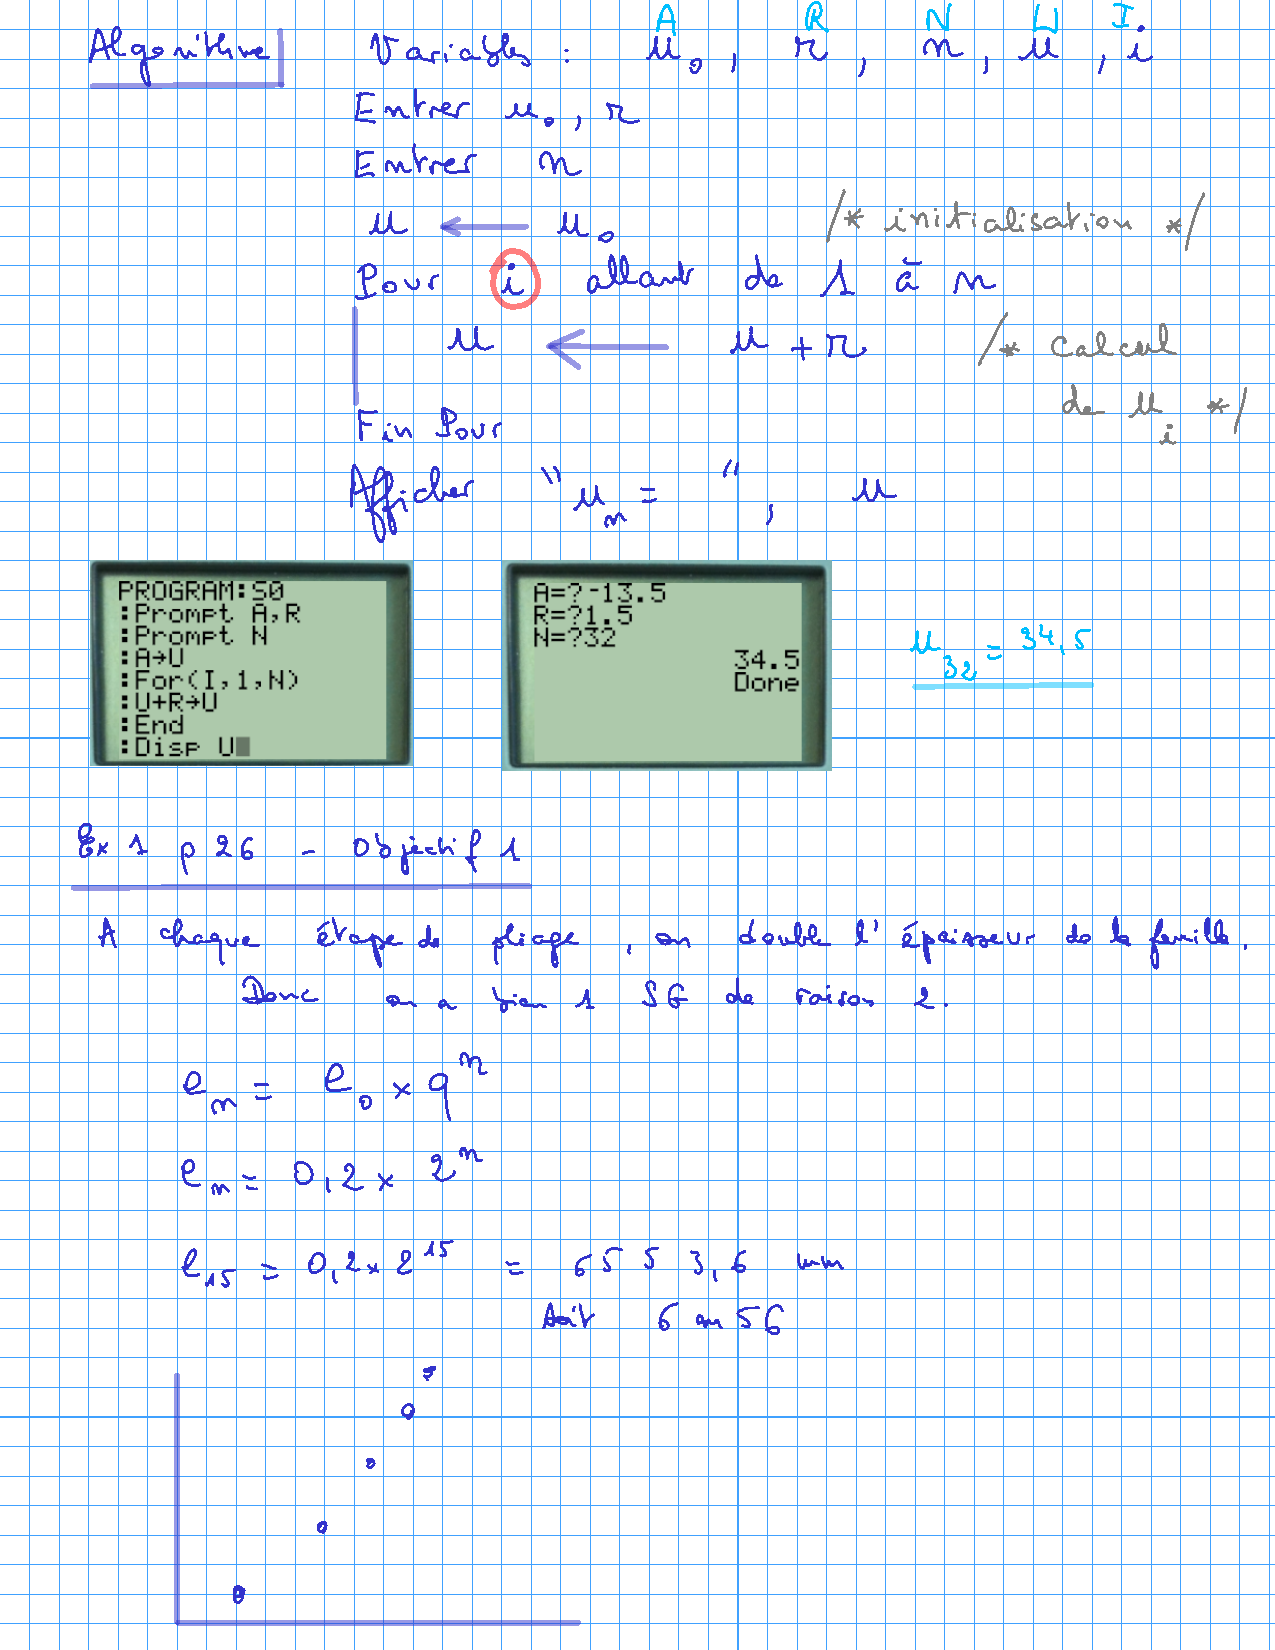 A R N U I
Algorithme Variables : u₀, r, n, u, i
Entrer u₀, r
Entrer n
u ← u₀ /* initialisation */
Pour i allant de 1 à n
u ← u + r /* calcul
de uᵢ */
Fin Pour
Afficher "uₙ = ", u
PROGRAM:S0
:Prompt A,R
:Prompt N
:A→U
:For(I,1,N)
:U+R→U
:End
:Disp U
A=?-13.5
R=?1.5
N=?32
34.5
Done
u₃₂ = 34,5
Ex 1 p 26 - Objectif 1
A chaque étape de pliage, on double l'épaisseur de la feuille.
Donc on a bien 1 SG de raison 2.
eₙ = e₀ × qⁿ
eₙ = 0,2 × 2ⁿ
e₁₅ = 0,2 × 2¹⁵ = 6553,6 mm
soit 6 m 56